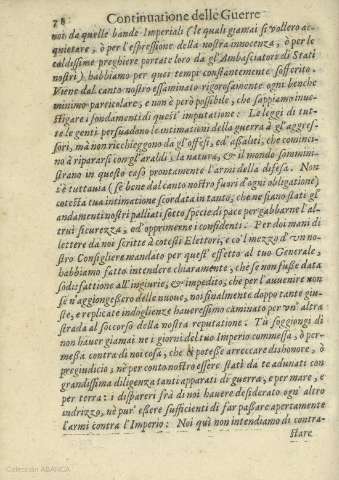 78 Continuatione delle Guerre
noi da quelle bande Imperiali (le quali giamai si vollero ac-
quietare, ò per l'espressione della nostra innocenza, ò per le
caldissime preghiere portate loro da gl'Ambasciatori di Stati
nostri) habbiamo per quei tempi constantemente sofferito.
Viene dal canto nostro essaminato rigorosamente ogni benche
minimo particolare, e non è però possibile, che sappiamo inue-
stigare i fondamenti di quest' imputatione. Le leggi di tut-
te le genti persuadono le intimationi della guerra à gl'aggres-
sori, mà non richieggono da gl'offesi, ed assaliti, che comincì-
no à ripararsi con gl'araldi; la natura, & il mondo sommini-
strano in questo caso prontamente l'armi della difesa. Non
s'è tuttauia (se bene dal canto nostro fuori d'ogni obligatione)
cotesta tua intimatione scordata in tanto, che ne siano stati gl'
andamenti nostri palliati sotto specie di pace per gabbarne l'al-
trui sicurezza, od opprimerne i confidenti. Per doi mani di
lettere da noi scritte à cotesti Elettori, e co'l mezzo d'vn no-
stro Consigliere mandato per quest' effetto al tuo Generale,
habbiamo fatto intendere chiaramente, che se non fusse data
sodisfattione all'ingiurie, & impedito, che per l'auuenire non
se n'aggiongessero delle nuoue, noi finalmente doppo tante giu-
ste, e replicate indoglienze haueressimo caminato per vn' altra
strada al soccorso della nostra reputatione. Tù soggiongi di
non hauer giamai ne i giorni del tuo Imperio commessa, ò per-
messa contra di noi cosa, che ci potesse arreccare dishonore, ò
pregiudicio, nè per conto nostro essere stati da te adunati con
grandissima diligenza tanti apparati di guerra, e per mare, e
per terra: i dispareri frà di noi hauere desiderato ogn' altro
indrizzo, nè pur' essere sufficienti di far passare apertamente
l'armi contra l'Imperio: Noi quì non intendiamo di contra-
stare
Colección ABANCA